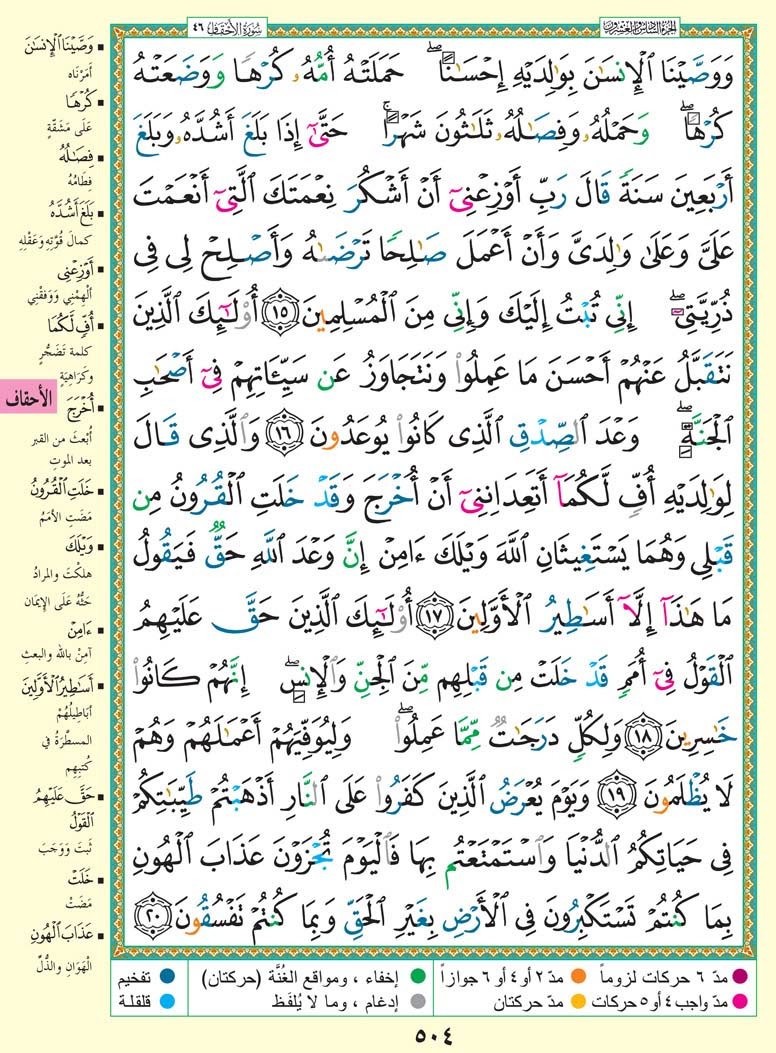 الجزء السادس والعشرون
سُورَةُ الأَحْقَافِ ٤٦
وَوَصَّيْنَا ٱلْإِنسَٰنَ بِوَٰلِدَيْهِ إِحْسَٰنًا ۖ حَمَلَتْهُ أُمُّهُۥ كُرْهًا وَوَضَعَتْهُ
كُرْهًا ۖ وَحَمْلُهُۥ وَفِصَٰلُهُۥ ثَلَٰثُونَ شَهْرًا ۚ حَتَّىٰٓ إِذَا بَلَغَ أَشُدَّهُۥ وَبَلَغَ
أَرْبَعِينَ سَنَةً قَالَ رَبِّ أَوْزِعْنِىٓ أَنْ أَشْكُرَ نِعْمَتَكَ ٱلَّتِىٓ أَنْعَمْتَ
عَلَىَّ وَعَلَىٰ وَٰلِدَىَّ وَأَنْ أَعْمَلَ صَٰلِحًا تَرْضَىٰهُ وَأَصْلِحْ لِى فِى
ذُرِّيَّتِىٓ ۖ إِنِّى تُبْتُ إِلَيْكَ وَإِنِّى مِنَ ٱلْمُسْلِمِينَ ١٥ أُو۟لَٰٓئِكَ ٱلَّذِينَ
نَتَقَبَّلُ عَنْهُمْ أَحْسَنَ مَا عَمِلُوا۟ وَنَتَجَاوَزُ عَن سَيِّـَٔاتِهِمْ فِىٓ أَصْحَٰبِ
ٱلْجَنَّةِ ۖ وَعْدَ ٱلصِّدْقِ ٱلَّذِى كَانُوا۟ يُوعَدُونَ ١٦ وَٱلَّذِى قَالَ
لِوَٰلِدَيْهِ أُفٍّ لَّكُمَآ أَتَعِدَانِنِىٓ أَنْ أُخْرَجَ وَقَدْ خَلَتِ ٱلْقُرُونُ مِن
قَبْلِى وَهُمَا يَسْتَغِيثَانِ ٱللَّهَ وَيْلَكَ ءَامِنْ إِنَّ وَعْدَ ٱللَّهِ حَقٌّ فَيَقُولُ
مَا هَٰذَآ إِلَّآ أَسَٰطِيرُ ٱلْأَوَّلِينَ ١٧ أُو۟لَٰٓئِكَ ٱلَّذِينَ حَقَّ عَلَيْهِمُ
ٱلْقَوْلُ فِىٓ أُمَمٍ قَدْ خَلَتْ مِن قَبْلِهِم مِّنَ ٱلْجِنِّ وَٱلْإِنسِ ۖ إِنَّهُمْ كَانُوا۟
خَٰسِرِينَ ١٨ وَلِكُلٍّ دَرَجَٰتٌ مِّمَّا عَمِلُوا۟ ۖ وَلِيُوَفِّيَهُمْ أَعْمَٰلَهُمْ وَهُمْ
لَا يُظْلَمُونَ ١٩ وَيَوْمَ يُعْرَضُ ٱلَّذِينَ كَفَرُوا۟ عَلَى ٱلنَّارِ أَذْهَبْتُمْ طَيِّبَٰتِكُمْ
فِى حَيَاتِكُمُ ٱلدُّنْيَا وَٱسْتَمْتَعْتُم بِهَا فَٱلْيَوْمَ تُجْزَوْنَ عَذَابَ ٱلْهُونِ
بِمَا كُنتُمْ تَسْتَكْبِرُونَ فِى ٱلْأَرْضِ بِغَيْرِ ٱلْحَقِّ وَبِمَا كُنتُمْ تَفْسُقُونَ ٢٠
▪ وَصَّيْنَا ٱلْإِنسَٰنَ
أَمَرْنَاه
▪ كُرْهًا
عَلَى مَشَقَّةٍ
▪ فِصَٰلُهُ
فِطَامُهُ
▪ بَلَغَ أَشُدَّهُ
كمالَ قُوَّتِهِ وعَقْلِهِ
▪ أَوْزِعْنِى
أَلْهِمْنِي وَوَفِّقْنِي
▪ أُفٍّ لَّكُمَا
كلمة تَضَجُّرٍ
وكَرَاهِيَةٍ
الأحقاف
▪ أُخْرَجَ
أُبْعَثَ من القبرِ
بعد الموتِ
▪ خَلَتِ ٱلْقُرُونُ
مَضَتِ الأمَمُ
▪ وَيْلَكَ
هلكْتَ والمرادُ
حَثُّهُ عَلَى الإيمَانِ
▪ ءَامِنْ
آمِنْ بالله والبعثِ
▪ أَسَٰطِيرُ ٱلْأَوَّلِينَ
أبَاطِيلُهُمْ
المسطَّرَةُ في
كُتبِهِم
▪ حَقَّ عَلَيْهِمُ
ٱلْقَوْلُ
ثَبَتَ وَوَجَبَ
▪ خَلَتْ
مَضَتْ
▪ عَذَابَ ٱلْهُونِ
الْهَوَانِ والذُّلِّ
مدّ ٦ حركات لزوماً مدّ ٢ أو ٤ أو ٦ جوازاً إخفاء ، ومواقع الغُنَّة (حركتان) تفخيم
مدّ واجب ٤ أو ٥ حركات مدّ حركتان إدغام ، وما لا يُلفَظ قلقلة
٥٠٤